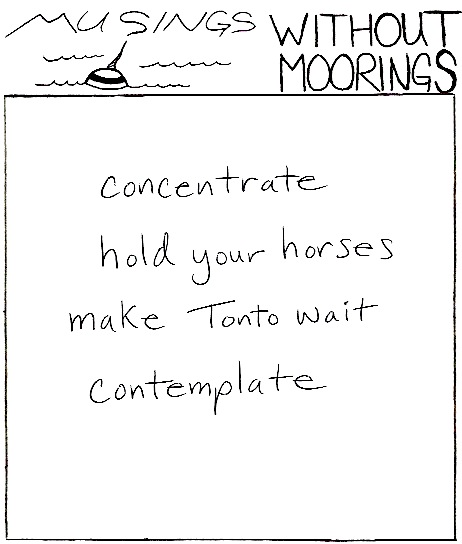 MUSINGS WITHOUT
MOORINGS
concentrate
hold your horses
make Tonto wait
contemplate